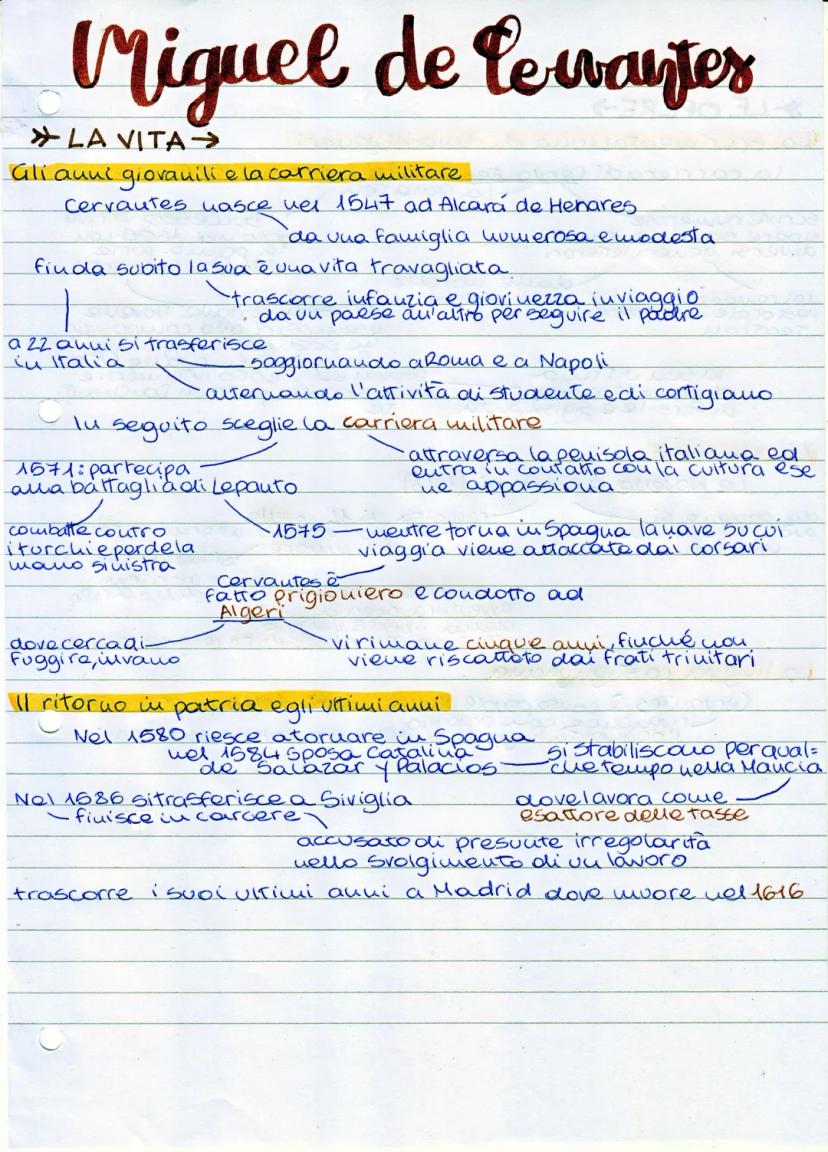 Miguel de Cervantes
LA VITA
Gli anni giovanili e la carriera militare
Cervantes nasce nel 1547 ad Alcará de Henares
da una famiglia numerosa e modesta
fin da subito la sua è una vita travagliata
trascorre infanzia e giovinezza in viaggio
da un paese all'altro per seguire il padre
a 22 anni si trasferisce
in Italia
soggiornando a Roma e a Napoli
alternando l'attività di studente e di cortigiano
In seguito sceglie la carriera militare
attraversa la penisola italiana ed
entra in contatto con la cultura e se
ne appassiona
1571: partecipa
alla battaglia di Lepanto
combatte contro
i turchi e perde la
mano sinistra
1575 — mentre torna in Spagna la nave su cui
viaggia viene attaccata dai corsari
Cervantes è
fatto prigioniero e condotto ad
Algeri
dove cerca di
fuggire, invano
vi rimane cinque anni, finché non
viene riscattato dai frati trinitari
Il ritorno in patria e gli ultimi anni
Nel 1580 riesce a tornare in Spagna
nel 1584 sposa Catalina
de Salazar y Palacios
si stabiliscono per qual=
che tempo nella Mancia
dove lavora come
esattore delle tasse
Nel 1686 si trasferisce a Siviglia
finisce in carcere
accusato di presunte irregolarità
nello svolgimento di un lavoro
trascorre i suoi ultimi anni a Madrid dove muore nel 1616